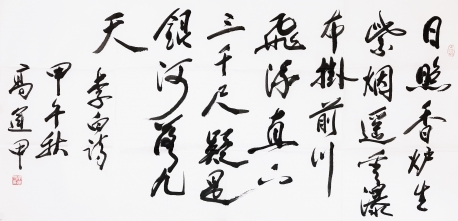 日照香炉生
紫烟遥看瀑
布掛前川
飛流直下
三千尺疑是
銀河落九
天
李白詩
甲午秋
高運甲